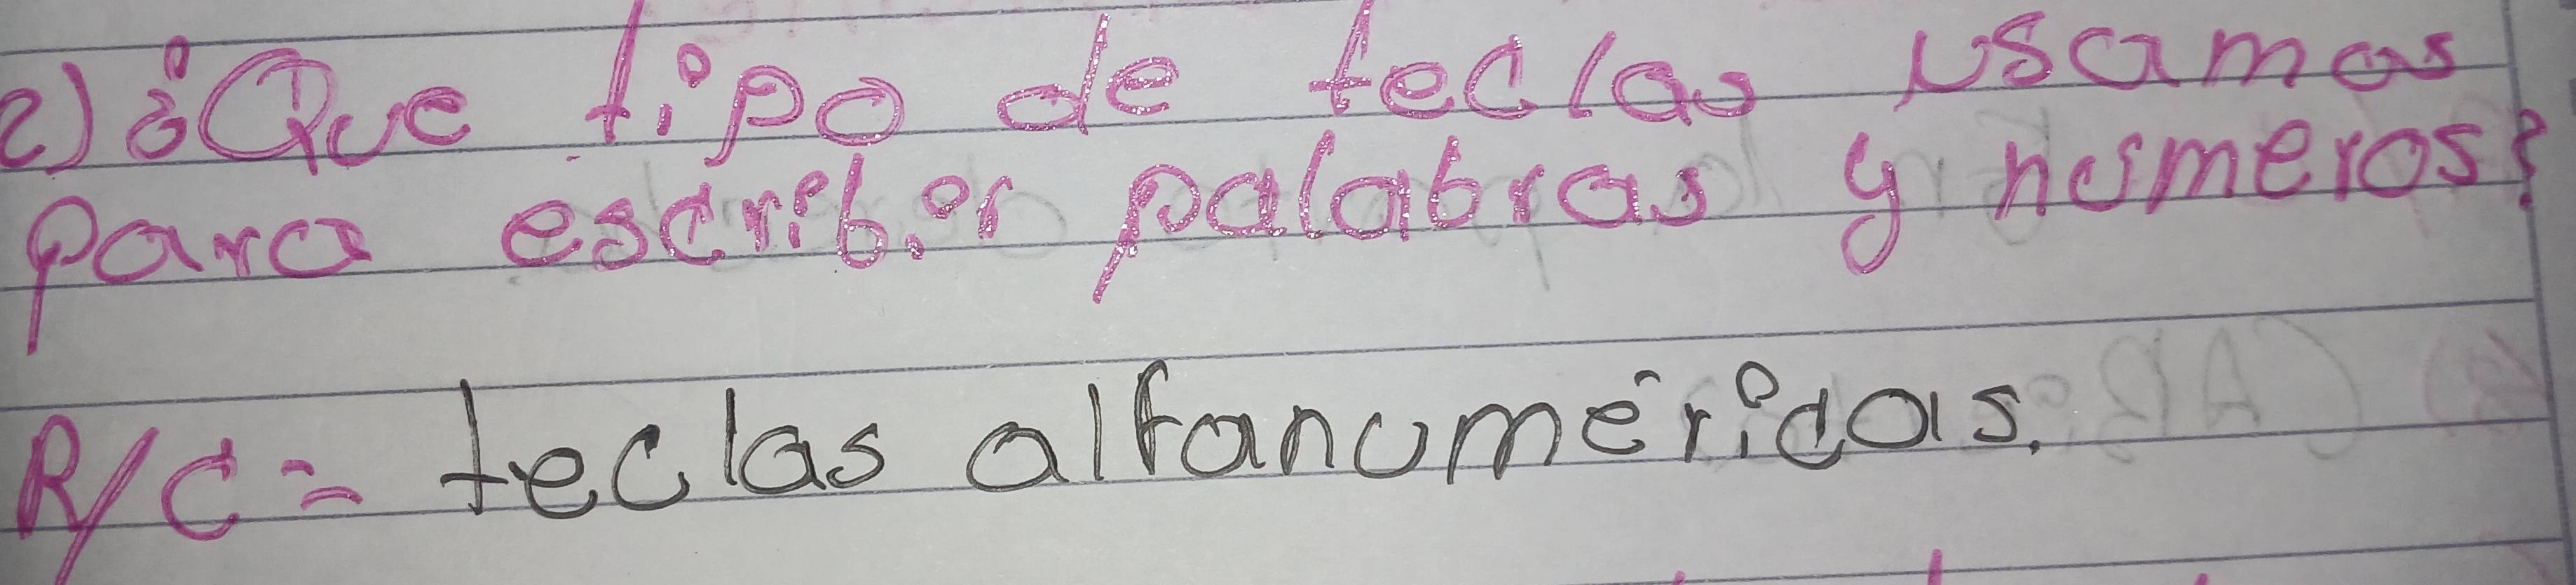 2) ¿Que tipo de teclas usamos
para escribir palabras y números?
R/C= teclas alfanuméricas.